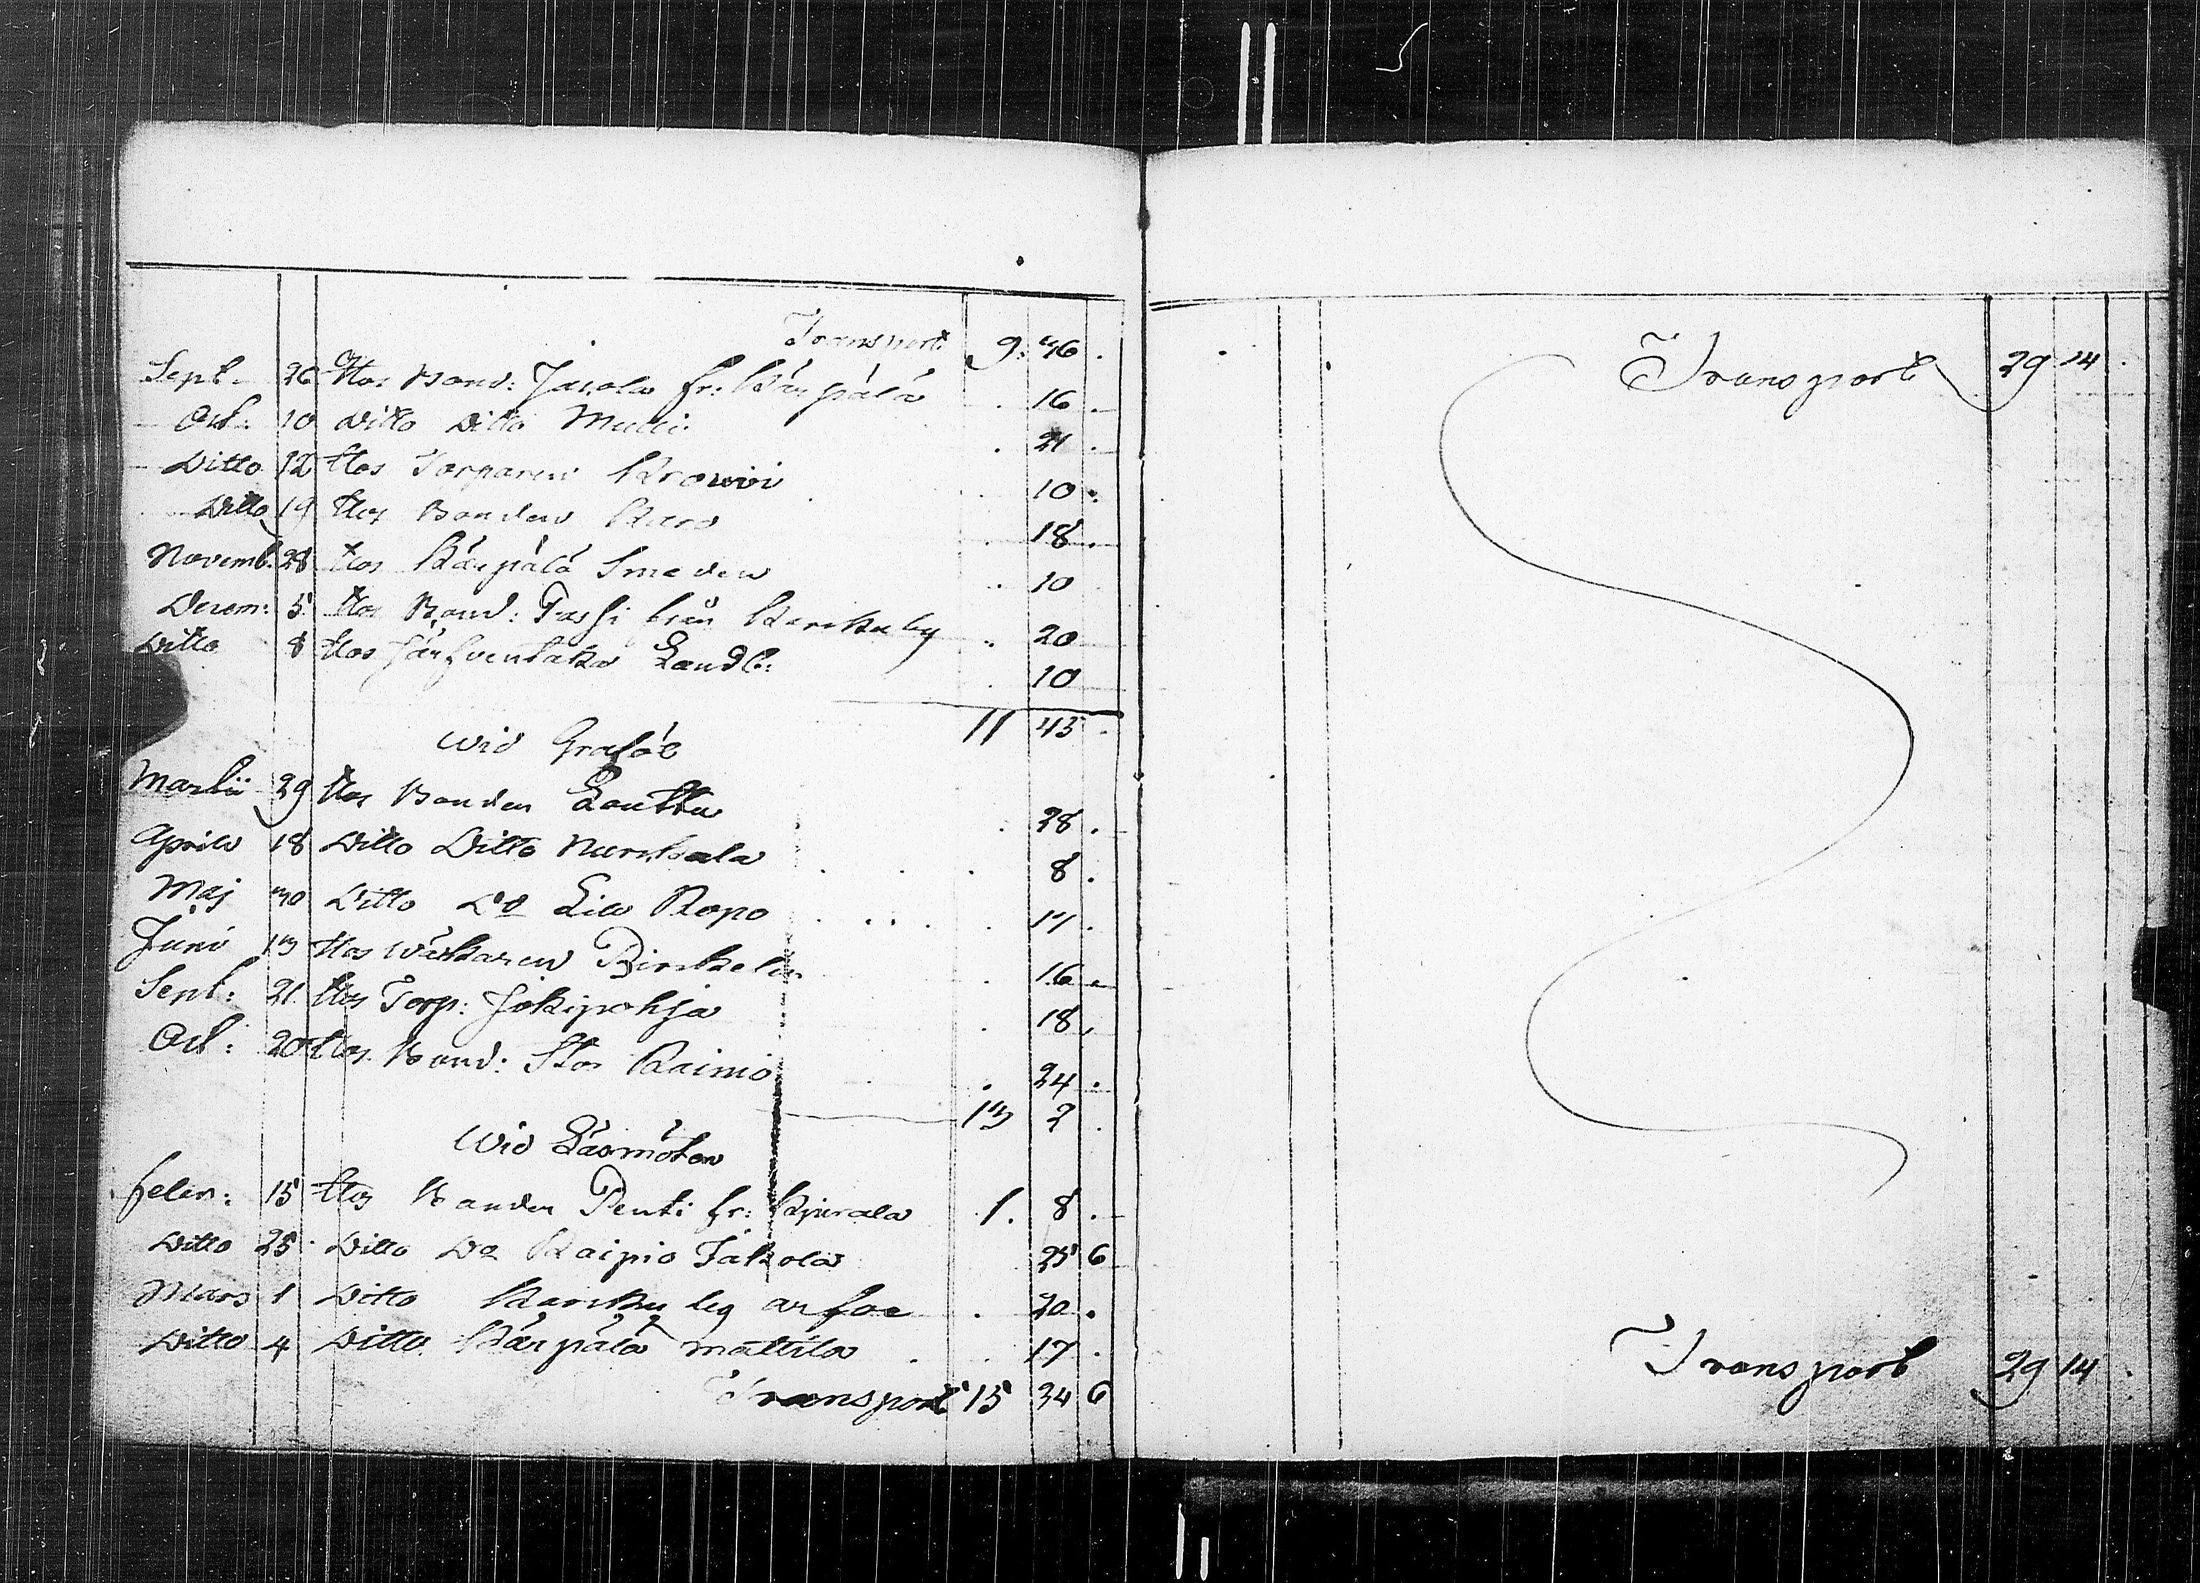 Transport 9. 36.
Sept. 26 Hos Bond: Jacola fr: Kärpälä . 16 .
Oct: 10 Ditto Ditto . 21 .
Ditto 12 Hos Torparen . 10 .
Ditto 19 Hos Bonden Karo . 18 .
Novemb. 28 Hos Kärpälä Smeden . 10
Decem: 5 Hos Bond: Passi från Karckuby . 20
Ditto 8 Hos Landb: . 10
11 45 .
Wid Grafôl
Martii 29 Hos Bonden Lauttu . 28 .
Aprilis 18 Ditto Ditto . 8 .
Maj 30 Ditto Do Lill Ropo . 17 .
Juni 13 Hos . 16 .
Sept: 21 Hos Torp: Jokipohja . 18 .
Oct: 20 Hos Bond: Stor Raimo . 24 .
13 2 .
Wid Läsmöten
Febr: 15 Hos Bonden Penti fr: 1. 8 .
Ditto 25 Ditto Do Kaipio Jakola 25 6
Mars 1 Ditto . 20 .
Ditto 4 Ditto Kärpälä Mattila . 17 .
Transport 15 34 6
Transport 29 14 .
Transport 29 14 .